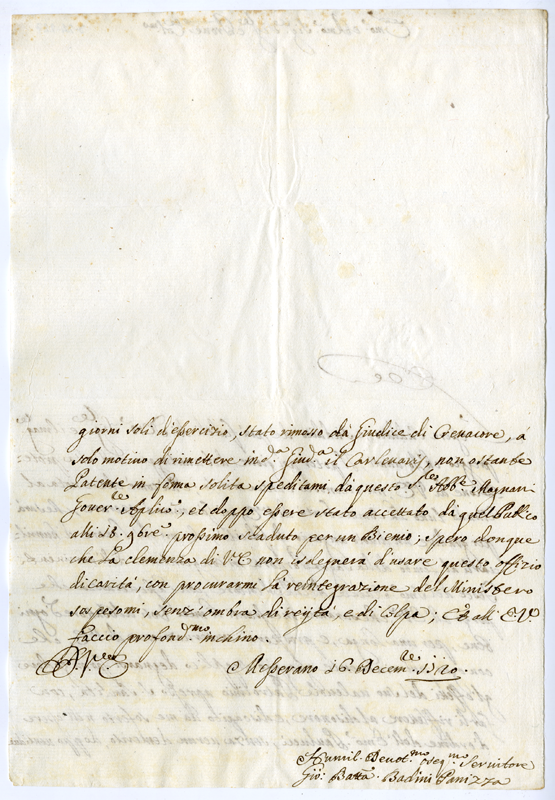 giorni soli d'essercizio, stato rimosso dà Giudice di Crevacore, à
solo motivo di rimettere in d.ª Giud.ª il Carlevaris, non ostante
Patente in forma solita speditami dà questo S.r Abb.e Magnani
Gover.re Aplico., et doppo essere stato accettato dà quel Publico
alli 18. 9bre. prossimo scaduto per un Bienio; spero donque
che la clemenza di V.E. non isdegnerà d'usare questo offizio
di carità, con procurarmi la reintegrazione del Ministero
sospesomi, senz'ombra di reità, e di Colpa; Et all' E.V.
faccio profond.mo inchino
Messerano 16. Decem.re 1720.
Humil. Devot.mo osseq.mo Servitore
Gio: Batta. Badini Panizza